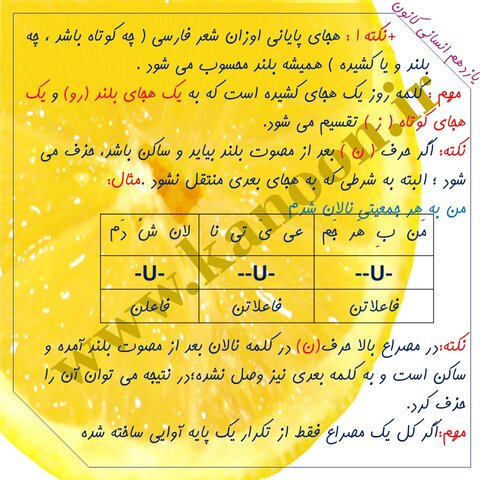 یازدهم انسانی کانون
+نکته ۱ : هجای پایانی اوزان شعر فارسی ( چه کوتاه باشد ، چه
بلند و یا کشیده ) همیشه بلند محسوب می شود .
مهم : کلمه روز یک هجای کشیده است که به یک هجای بلند (رو) و یک
هجای کوتاه ( ز ) تقسیم می شود.
نکته: اگر حرف ( ن ) بعد از مصوت بلند بیاید و ساکن باشد، حذف می
شود ؛ البته به شرطی که به هجای بعدی منتقل نشود .مثال:
من به هر جمعیتی نالان شدم
مَن بِ هَر جَم عی یَ تی نا لان شُ دَم
-U-- -U-- -U-
فاعلاتن فاعلاتن فاعلن
نکته:در مصراع بالا حرف(ن) در کلمه نالان بعد از مصوت بلند آمده و
ساکن است و به کلمه بعدی نیز وصل نشده؛در نتیجه می توان آن را
حذف کرد.
مهم:اگر کل یک مصراع فقط از تکرار یک پایه آوایی ساخته شده
www.kanoon.ir